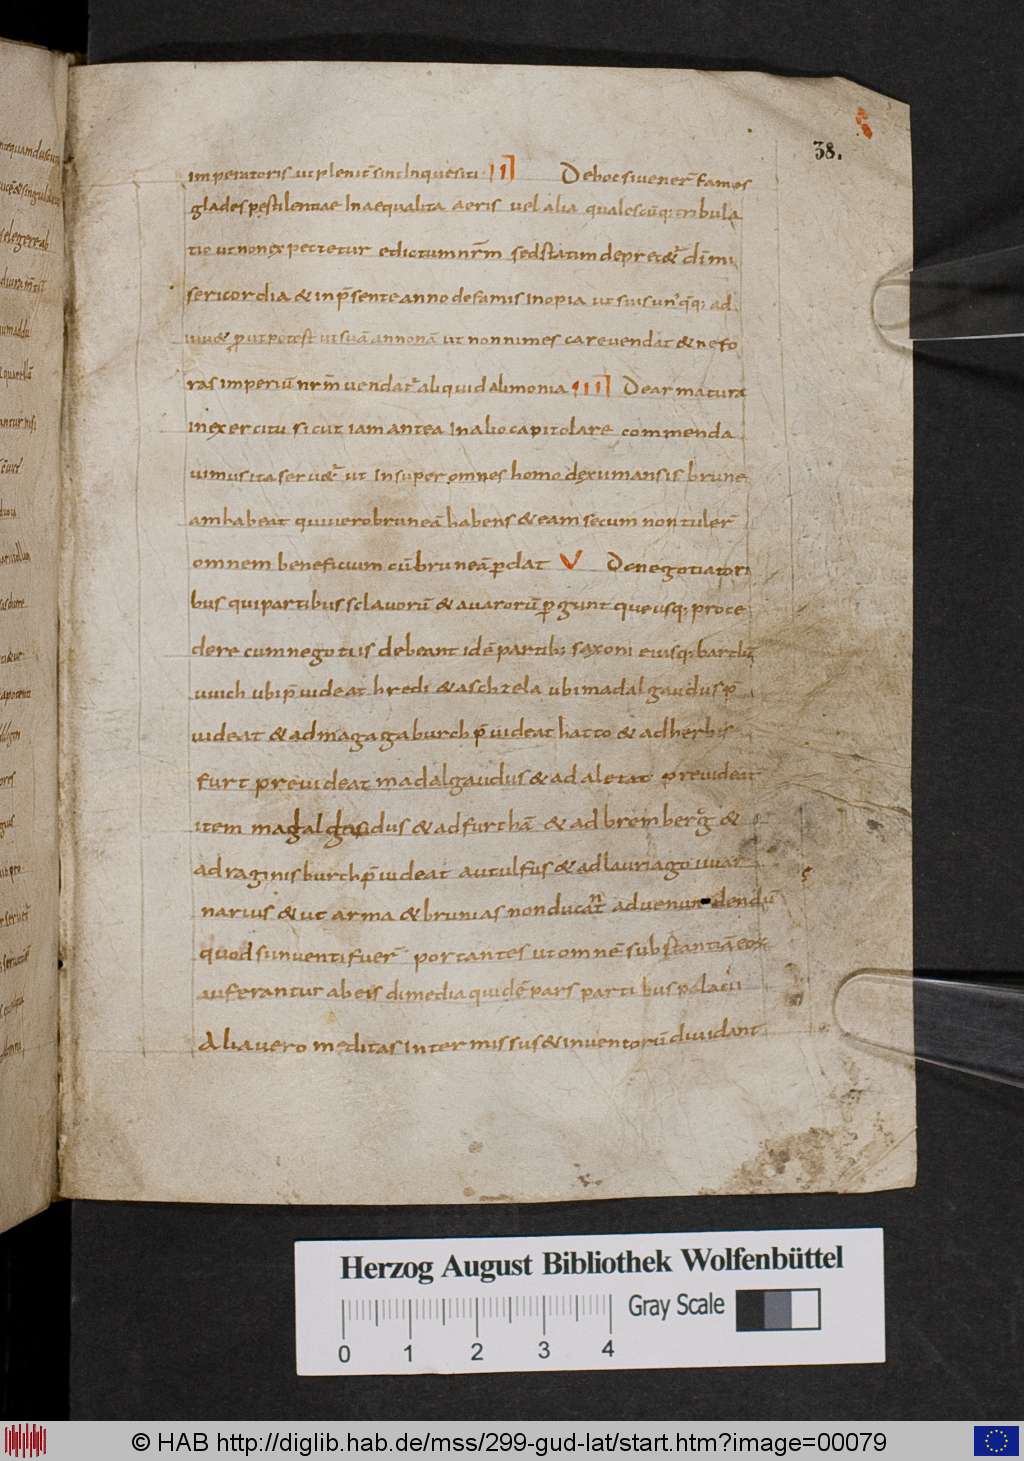 38.
imperatoris ut pleniť sint Inquesiti III De hoc si uener̄ famos
glades pestilentiae Inaequalita aeris uel alia qualescūq; tribula
tio ut non expectetur edictum nr̄m sed statim depret& dn̄i mi
sericordia & in p̄sente anno de famis Inopia ut suis
ut suā annonā ut non nimes care uendat & ne fo
ras imperiū nr̄m uendat aliquid alimonia IIII De armatura
in exercitu sicut iam antea In alio capitolare commenda
uimus ita ser& ut Insuper omnes homo de xii mansis brune
am habeat qui uero bruneā habens & eam secum non tuler̄
omnem beneficium cū bruneā p̄dat V De negotiatori
bus qui partibus sclauorū & auarorū p̄gunt que usq; proce
dere cum negotiis debeant idē partib; saxoni eusq; bardū
uuich ubi p̄uideat hredi & aschzela ubi madalgaudus p̄
uideat & ad magagaburch p̄uideat hatto & ad herbis
furt preuideat madalgaudus & ad aletat preuideat
item madalgaudus & ad furthā & ad bremberg &
ad raginisburch p̄uideat autulfus & ad lauriago uuar
narius & ut arma & brunias non ducant ad uenundendū
quod si inuenti fuer̄ portantes ut omnē substantiā eor̄
auferantur ab eis dimedia quidē pars partibus palacii
Alia uero meditas Inter missus & inuentorū diuidant
Herzog August Bibliothek Wolfenbüttel
Gray Scale
0 1 2 3 4
© HAB http://diglib.hab.de/mss/299-gud-lat/start.htm?image=00079